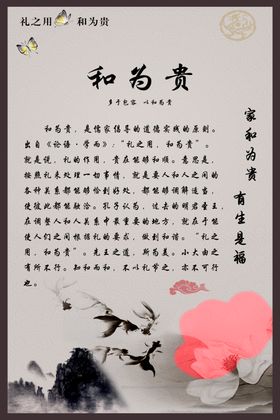 礼之用 和为贵
和为贵
多于包容 以和为贵
和为贵，是儒家倡导的道德实践的原则。
出自《论语·学而》："礼之用，和为贵。"
就是说，礼的作用，贵在能够和顺。意思是，
按照礼来处理一切事情，就是要人和人之间的
各种关系都能够恰到好处，都能够调解适当，
使彼此都能融洽。孔子认为，过去的明君圣王，
在调整人和人关系中最重要的地方，就在于能
使人们之间根据礼的要求，做到和谐。"礼之
用，和为贵"。先王之道，斯为美。小大由之，
有所不行。知和而和，不以礼节之，亦不可行
也。
家和为贵
有生是福